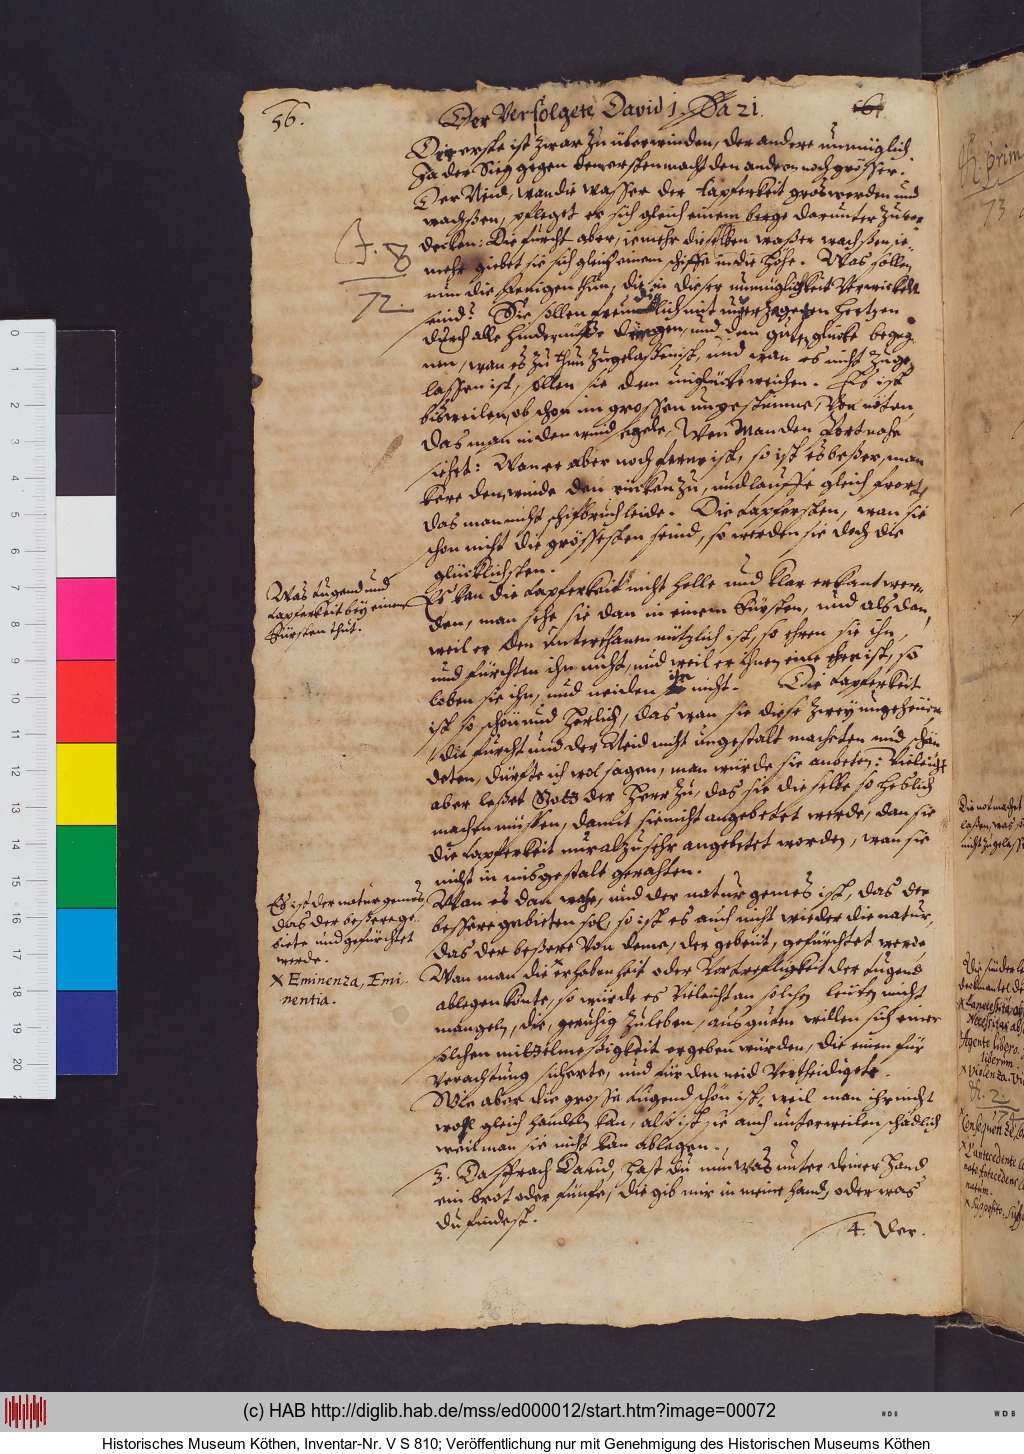 56.
Der Verfolgete David 1. Sa 21.
Die erste ist zwar zu überwinden, der andere unmüglich.
Ja der Sieg gegen den ersten macht den andern noch grösser.
Der Neid, wan die wasser der tapferkeit gros werden und
wachsen, pfleget er sich gleich einem berge darunter zuver-
decken: Die furcht aber, iemehr dieselben waßer wachßen, ie-
mehr giebet sie sich gleich einem schiffe in die höhe. Was sollen
nun die jenigen thun, die in dieser unmüglichkeit verwickelt
seind? Sie sollen freundlich mit unverzagetem hertzen
durch alle hindernüsse dringen, und dem guten glücke begeg-
nen, wan es zu thun zugelaßen ist, und wan es nicht zuge-
lassen ist, sollen sie dem unglücke weichen. Es ist
bisweilen, ob schon im grossen ungestümme, von nöten,
das man in den wind segele, Wen man den Port nahe
siehet: Wan er aber noch ferne ist, so ist es beßer, man
kere dem winde den rücken zu, und lauffe gleich fort,
das man nicht schifbruch leide. Die tapfersten, wan sie
schon nicht die grössesten seind, so werden sie doch die
glücklichsten.
Es kan die tapferkeit nicht helle und klar erkant wer-
den, man sehe sie dan in einem Fürsten, und als dan,
weil er den unterthanen nützlich ist, so ehren sie ihn,
und fürchten ihn nicht, und weil er ihnen eine ehre ist, so
loben sie ihn, und neiden ihn nicht. Die tapferkeit
ist so schön und herlich, das wan sie diese zwey ungeheüer
die furcht und der Neid nicht ungestalt machten und schän-
deten, dürfte ich wol sagen, man würde sie anbeten: Vieleicht
aber leßet Gott der Herr zu, das sie dieselbe so heslich
machen müssen, damit sie nicht angebetet werde, dan sie
die tapferkeit nur alzusehr angebetet worden, wan sie
nicht in misgestalt gerahten.
Wan es dan wahr, und der natur gemes ist, das der
bessere gebieten sol, so ist es auch nicht wieder die natur,
das der beßere von deme, der gebeut, gefürchtet werde
Wan man die erhabenheit oder Vortrefligkeit der tugend
ablegen könte, so würde es vieleicht an solchen leuten nicht
mangeln, die, geruhig zu leben, aus guten willen sich einer
solchen mittelmessigkeit ergeben würden, die einen für
verachtung sicherte, und für den neid vertheidigete.
Wie aber die grosse tugend schön ist, weil man ihr nicht
wohl gleich handeln kan, also ist sie auch unterweilen schädlich
weil man sie nicht kan ablegen.
3. Da sprach David, hast du nun was unter deiner hand
ein brot oder fünfe, die gib mir in meine hand, oder was
du findest.
4. Der.
A. 8
72.
Was tugend und
tapferkeit bey einem
Fürsten thut.
Es ist der natur gemes
das der beßere ge-
biete und gefürchtet
werde.
X Eminenza, Emi-
nentia.
73
(c) HAB http://diglib.hab.de/mss/ed000012/start.htm?image=00072
Historisches Museum Köthen, Inventar-Nr. V S 810; Veröffentlichung nur mit Genehmigung des Historischen Museums Köthen